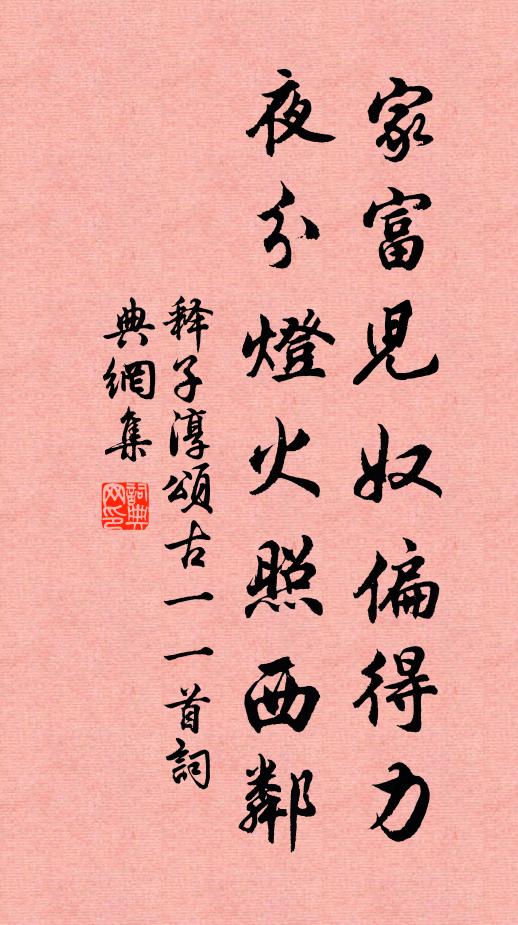 家富児奴偏得力
夜分燈火照西鄰
释子淳頌古一一首詞
典網集
詞典网印